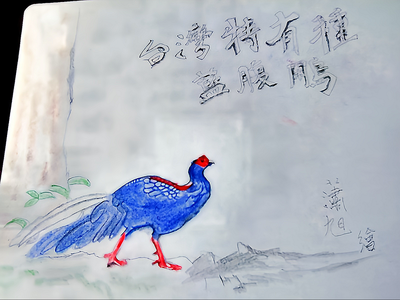 台灣特有種
藍腹鷴
瀟旭
繪